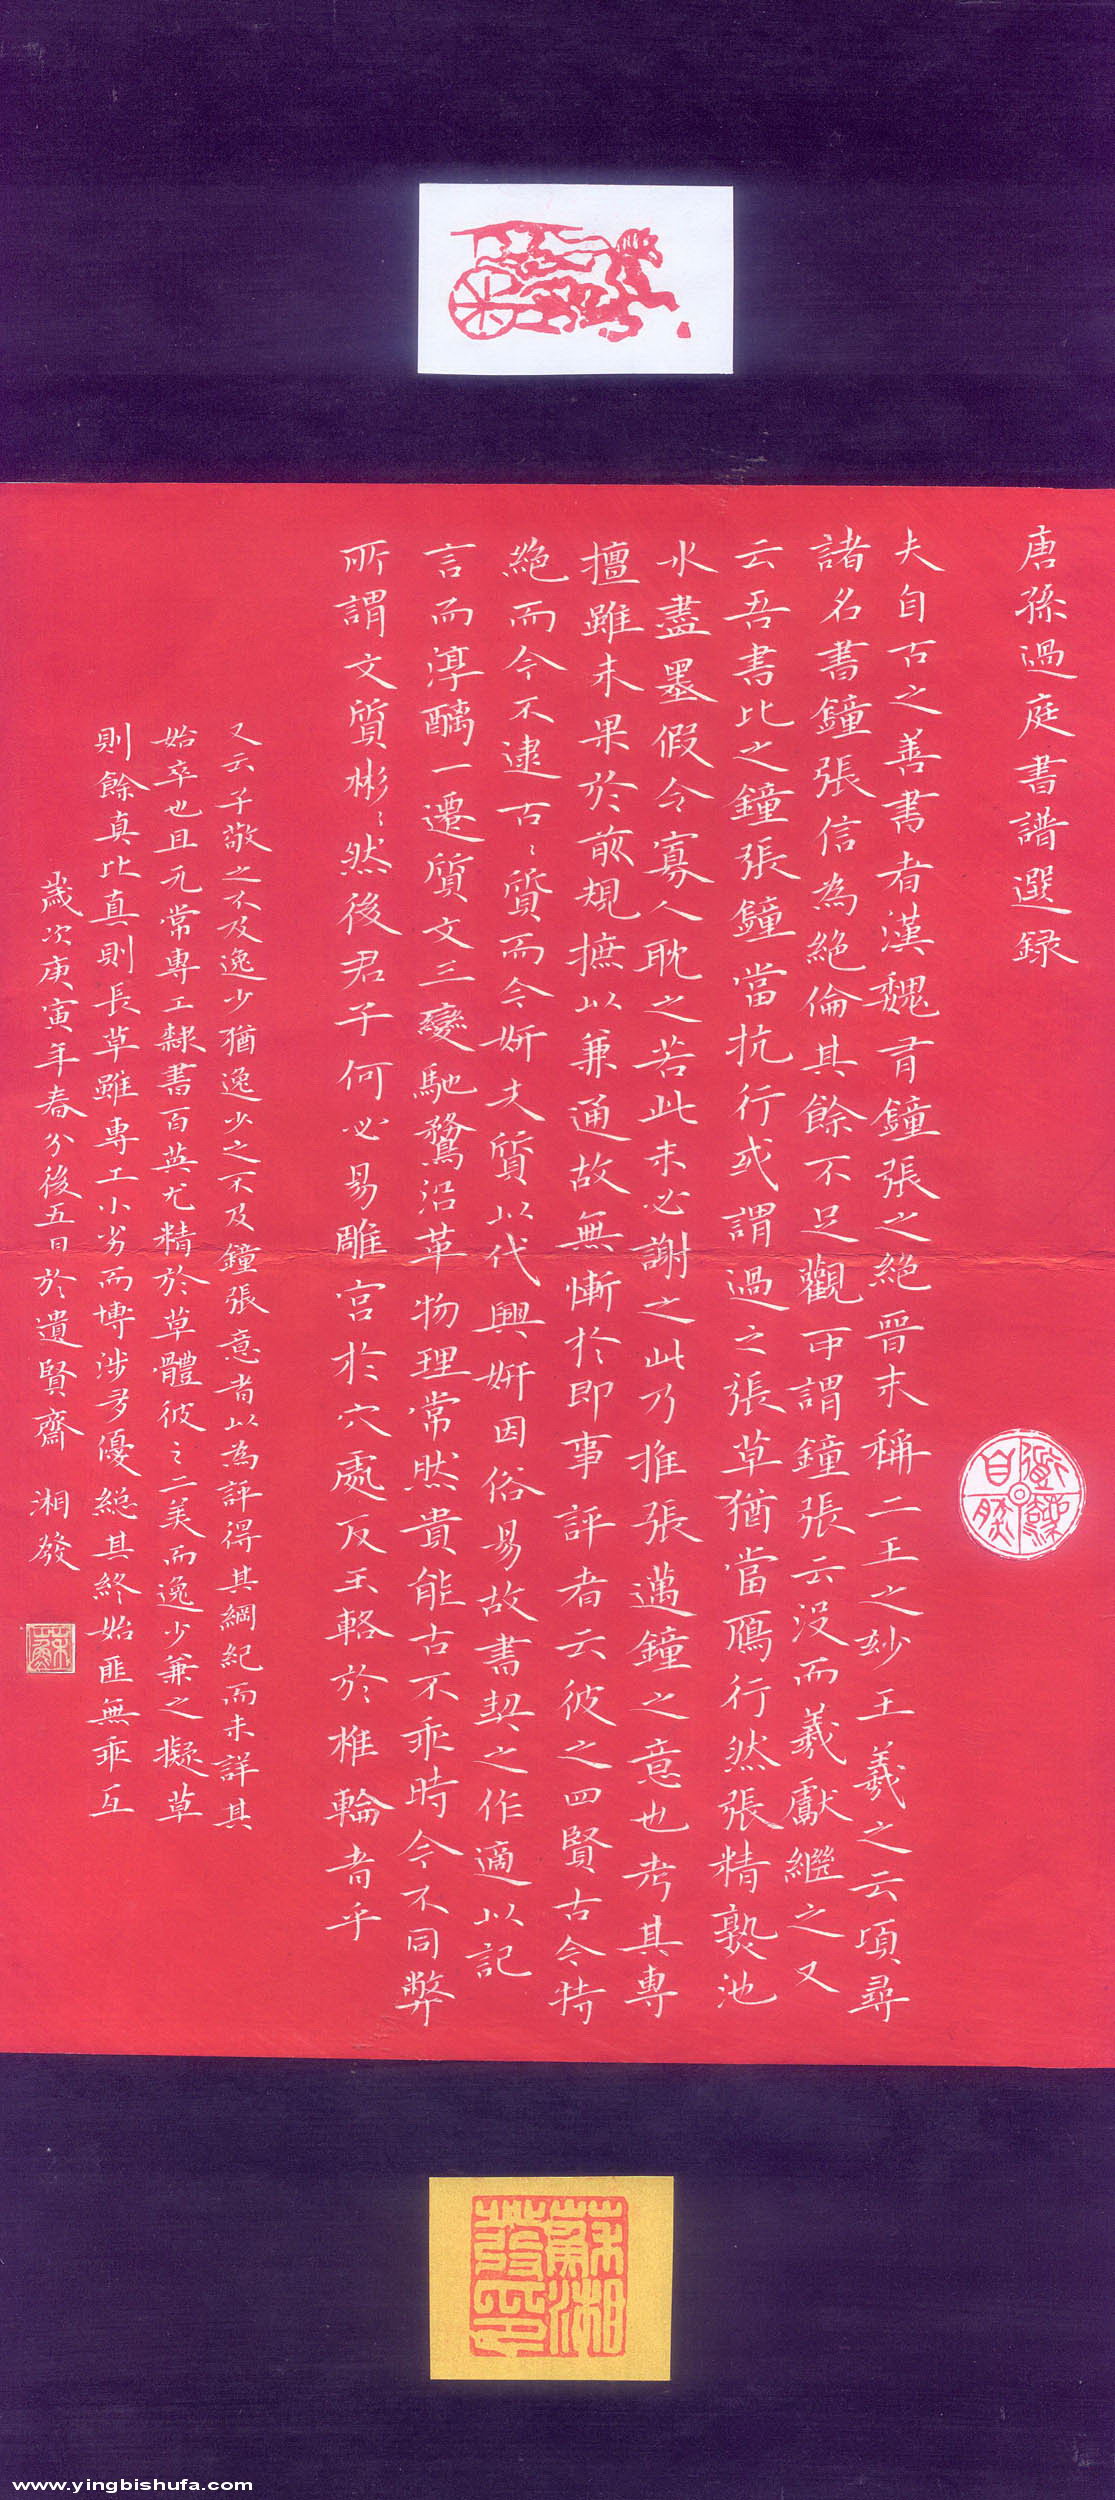 唐孫過庭書譜選录
夫自古之善書者漢魏有鐘張之絶晉末稱二王之妙王羲之云項尋
諸名書鐘張信為絶倫其餘不足觀可謂鐘張云没而羲獻繼之又
云吾書比之鐘張鐘當抗行或謂過之張草猶當鴈行然張精熟池
水盡墨假令寡人耽之若此未必謝之此乃推張邁鐘之意也考其專
擅雖未果於前規摭以兼通故無慚於即事評者云彼之四賢古今特
絶而今不逮古〻質而今妍夫質以代興妍因俗易故書契之作適以記
言而淳醨一遷質文三變馳騖沿革物理常然貴能古不乖時今不同弊
所謂文質彬〻然後君子何必易雕宫於穴處反玉輅於椎輪者乎
又云子敬之不及逸少猶逸少之不及鐘張意者以為評得其綱紀而未詳其
始卒也且元常專工隸書百英尤精於草體彼之二美而逸少兼之擬草
則餘真比真則長草雖專工小劣而博涉多優總其終始匪無乖互
歲次庚寅年春分後五日於遺賢齋 湘發
蘇湘發印
www.yingbishufa.com